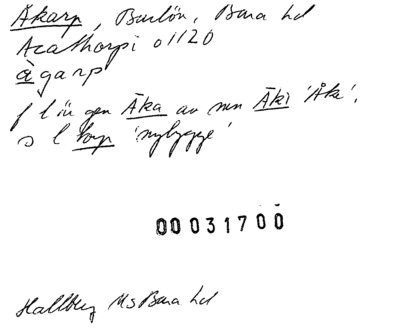 Åkarp, Burlöv, Bara hd
Acathorpi o 1120
àgarp
f l är gen Āka av mn Āki 'Åke',
s l torp 'nybygge'
00031700
Hallberg Ms Bara hd